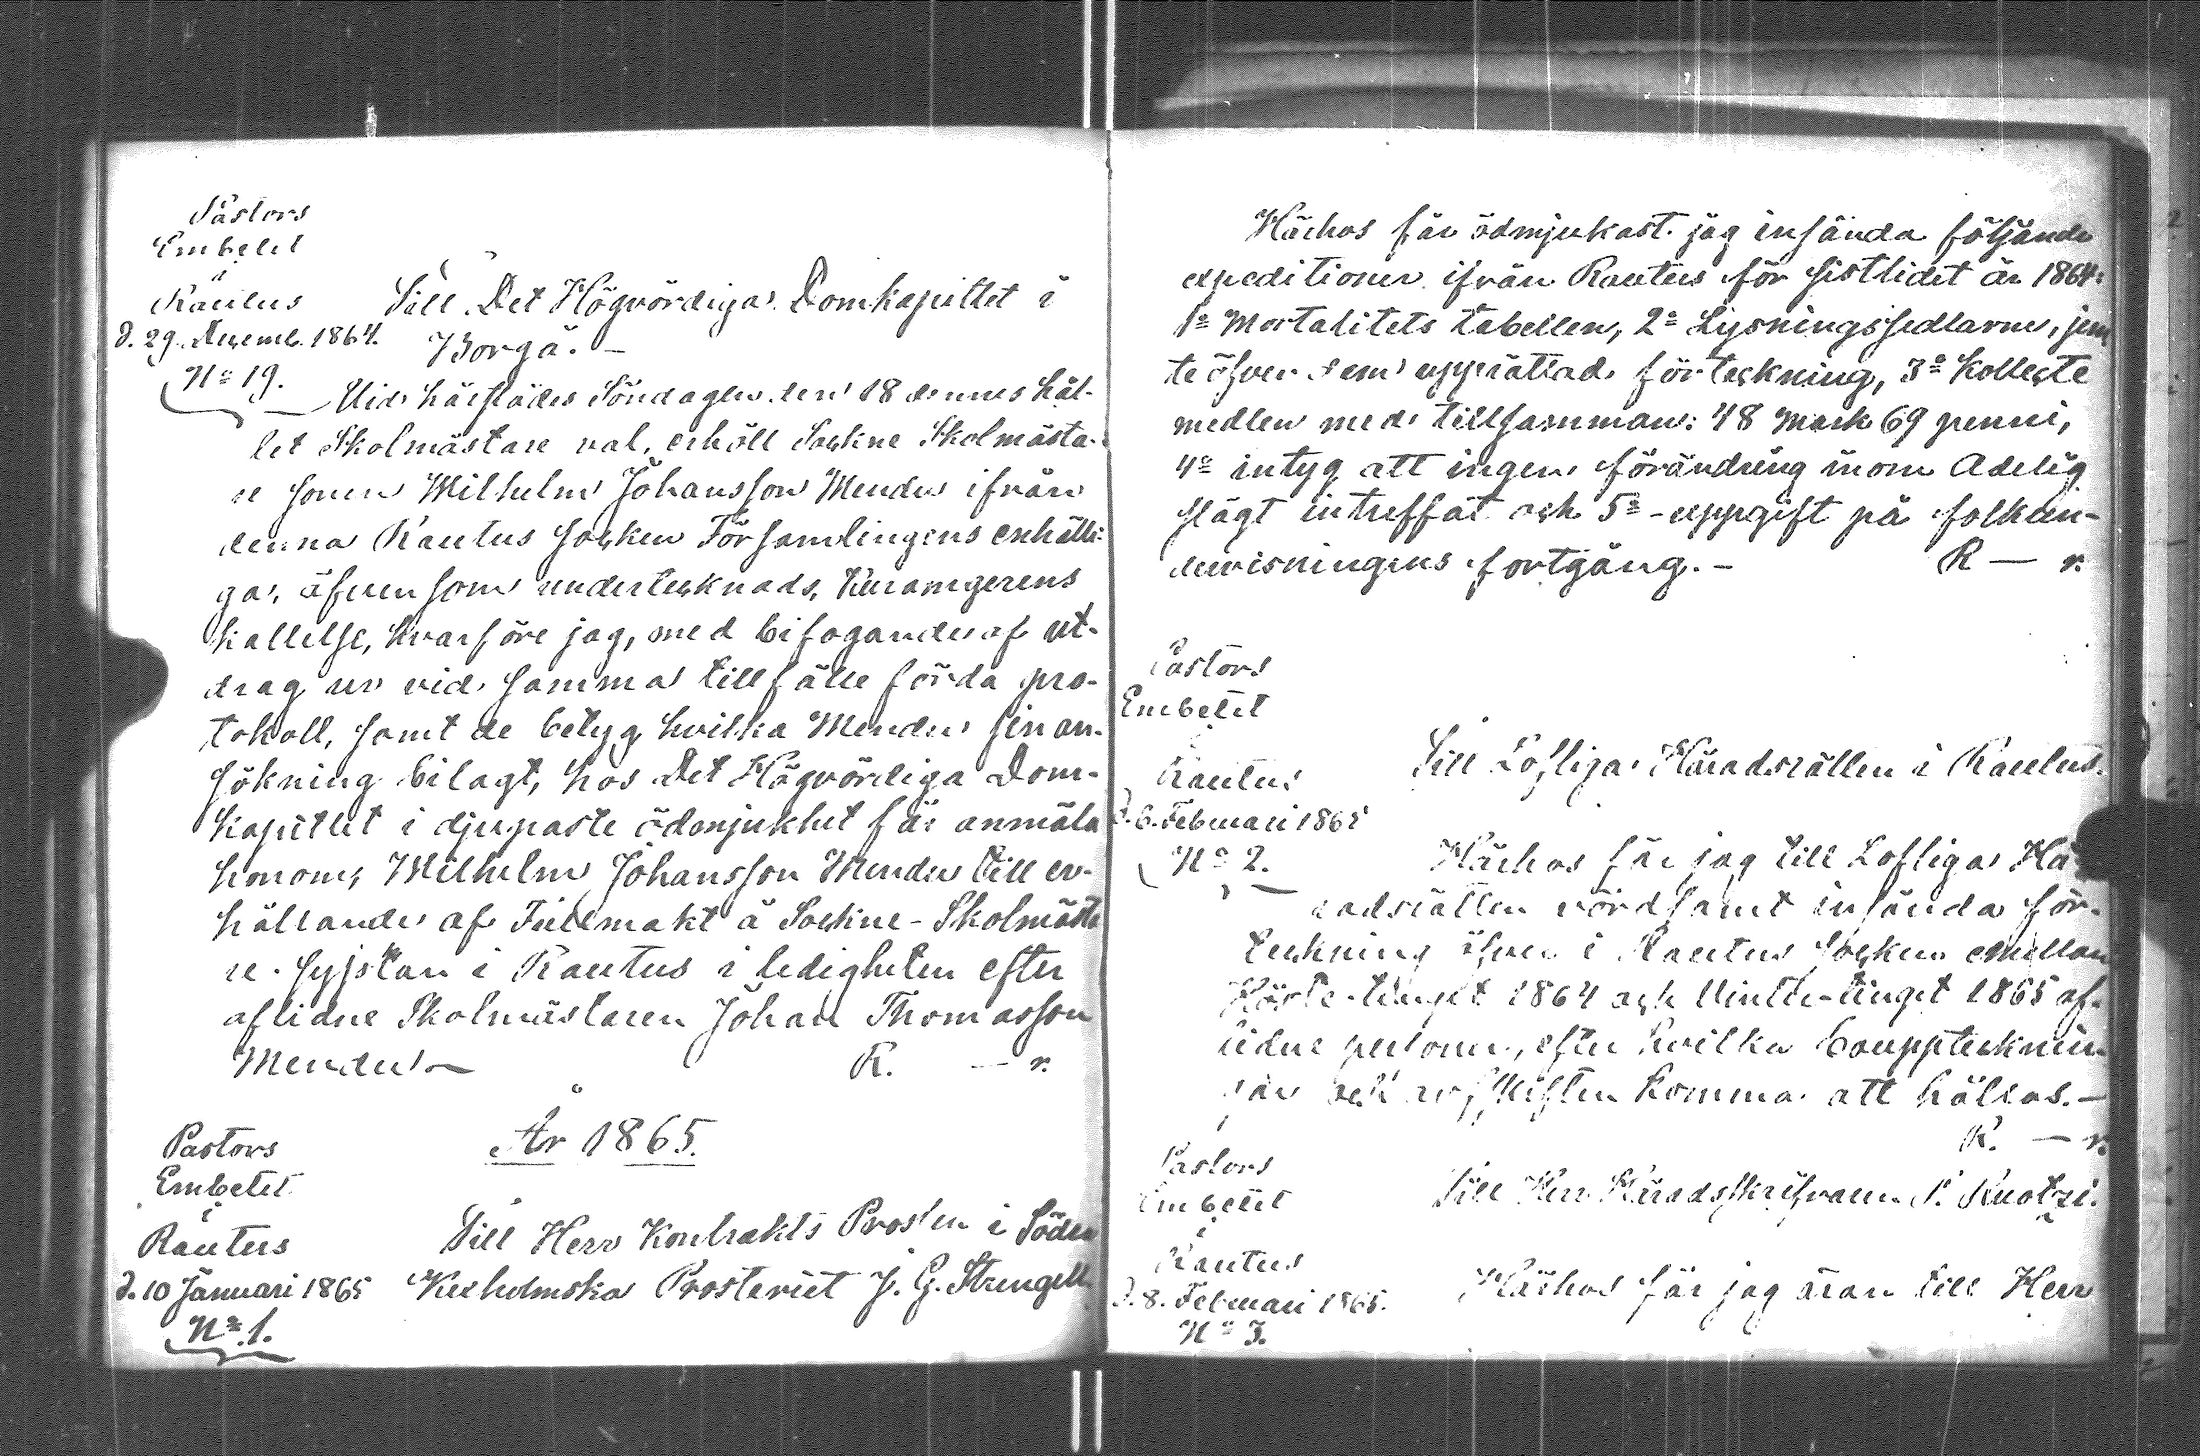 Pastors
Embetet
i
Rautus
d. 29. Decemb. 1864.
No 19.
Till Det Högvördiga Domkapitlet i
Borgå. —
Vid härstädes Söndagen den 18 dennes hål-
let Skolmästare val, erhöll Sockne Skolmästa-
re sonen Wilhelm Johansson Mender ifrån
denna Rautus socken Församlingens enhälli-
ga, äfvensom undertecknads,
kallelse, hvarföre jag, med bifogande af ut-
drag ur vid samma tillfälle förda pro-
tokoll, samt de betyg hvilka Mender sin an-
sökning bilagt, hos Det Högvördiga Dom-
kapitlet i djupaste ödmjukhet får anmäla
honom, Wilhelm Johansson Mender till er-
hållande af Fullmakt å Sockne-Skolmästa
re-sysslan i Rautus i ledigheten efter
aflidne Skolmästaren Johan Thomasson
Mender. — R. — r.
År 1865.
Pastors
Embetet
i
Rautus
d. 10 Januari 1865
No 1.
Till Herr Kontrakts Prosten i Södra
Kexholmska Prosteriet J. G. Strengell
Härhos får ödmjukast jag insända följande
expeditioner ifrån Rautus för sistlidet år 1864:
1o Mortalitets tabellen, 2o Lysningssedlarne, jem
te öfver dem upprättad förteckning, 3o Kollekte
medlen med tillsamman: 48 Mark 69 penni,
4o intyg att ingen förändring inom Adelig
slägt inträffat och 5o uppgift på folkun-
dervisningens fortgång. — R — r.
Pastors
Embetet
i
Rautus
d. 6. Februari 1865
No 2.
Till Lofliga Häradsrätten i Rautus.
Härhos får jag till Lofliga Hä-
radsrätten vördsamt insända för-
teckning öfver i Rautus socken emellan
Höste-tinget 1864 och Vinter-tinget 1865 af-
lidne personer, efter hvilka bouppteknin-
gar och arfskiften komma att hållas. —
R. — r.
Pastors
Embetet
i
Rautus
d. 8. Februari 1865.
No 3.
Till Herr Häradsskrifvaren
Härhos får jag äran till Herr